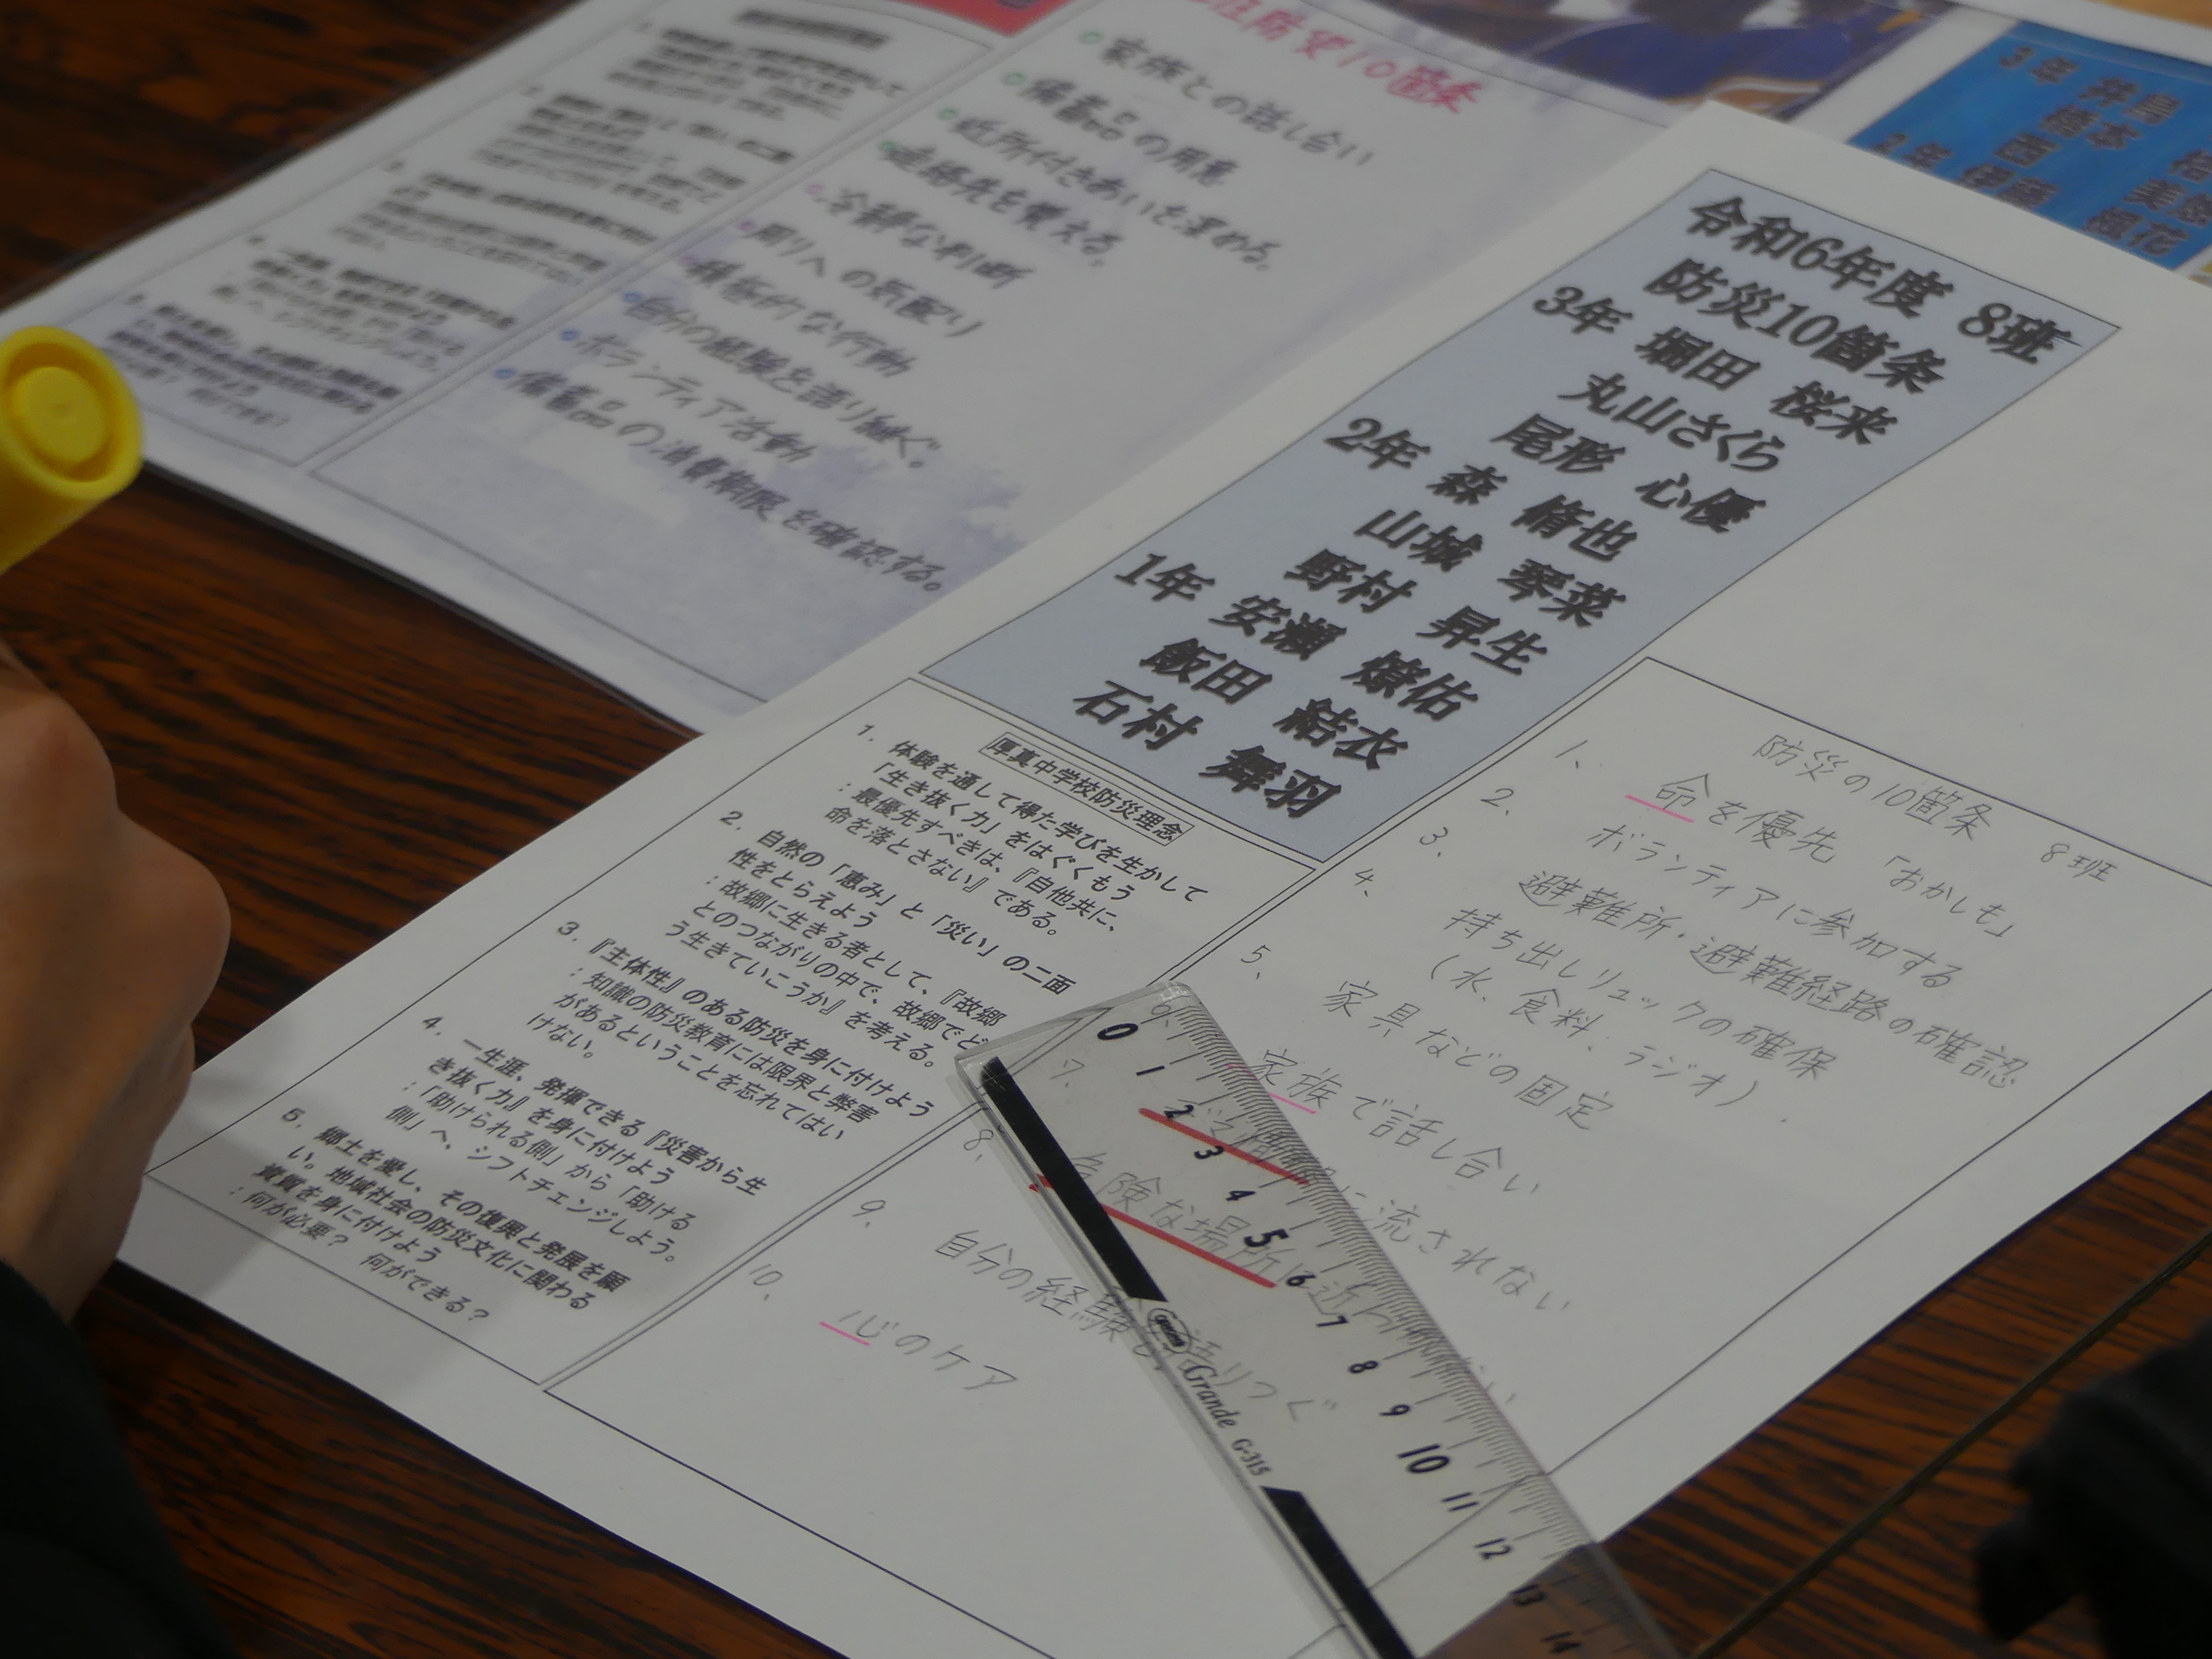 防災10箇条
家族との話し合い
備蓄品の用意
近所付きあいを深める。
連絡先を覚える。
冷静な判断
周りへの気配り
積極的な行動
自分の経験を語り継ぐ。
ボランティア活動
備蓄品の消費期限を確認する。
3年
橋本
西
2年 伊藤 楓花
令和6年度 8班
防災10箇条
3年 堀田 桜来
丸山さくら
尾形 心優
2年 森 脩也
山城 琴菜
野村 昇生
1年 安瀬 燎佑
飯田 結衣
石村 舞羽
厚真中学校防災理念
1. 体験を通して得た学びを生かして
「生き抜く力」をはぐくもう
:最優先すべきは、『自他共に、
命を落とさない』である。
2. 自然の「恵み」と「災い」の二面
性をとらえよう
:故郷に生きる者として、『故郷
とのつながりの中で、故郷でど
う生きていこうか』を考える。
3. 『主体性』のある防災を身に付けよう
:知識の防災教育には限界と弊害
があるということを忘れてはい
けない。
4. 一生涯、発揮できる『災害から生
き抜く力』を身に付けよう
:「助けられる側」から「助ける
側」へ、シフトチェンジしよう。
5. 郷土を愛し、その復興と発展を願
い。地域社会の防災文化に関わる
資質を身に付けよう
:何が必要? 何ができる?
防災の10箇条 8班
1、 命を優先 「おかしも」
2、 ボランティアに参加する
3、 避難所・避難経路の確認
4、 持ち出しリュックの確保
(水、食料、ラジオ)
5、 家具などの固定
6、 家族で話し合い
7、 デマ情報に流されない
8、 危険な場所に近づかない
9、 自分の経験を語りつぐ
10、 心のケア
0 1 2 3 4 5 6 7 8 9 10 11 12 13 14
Grande G-315